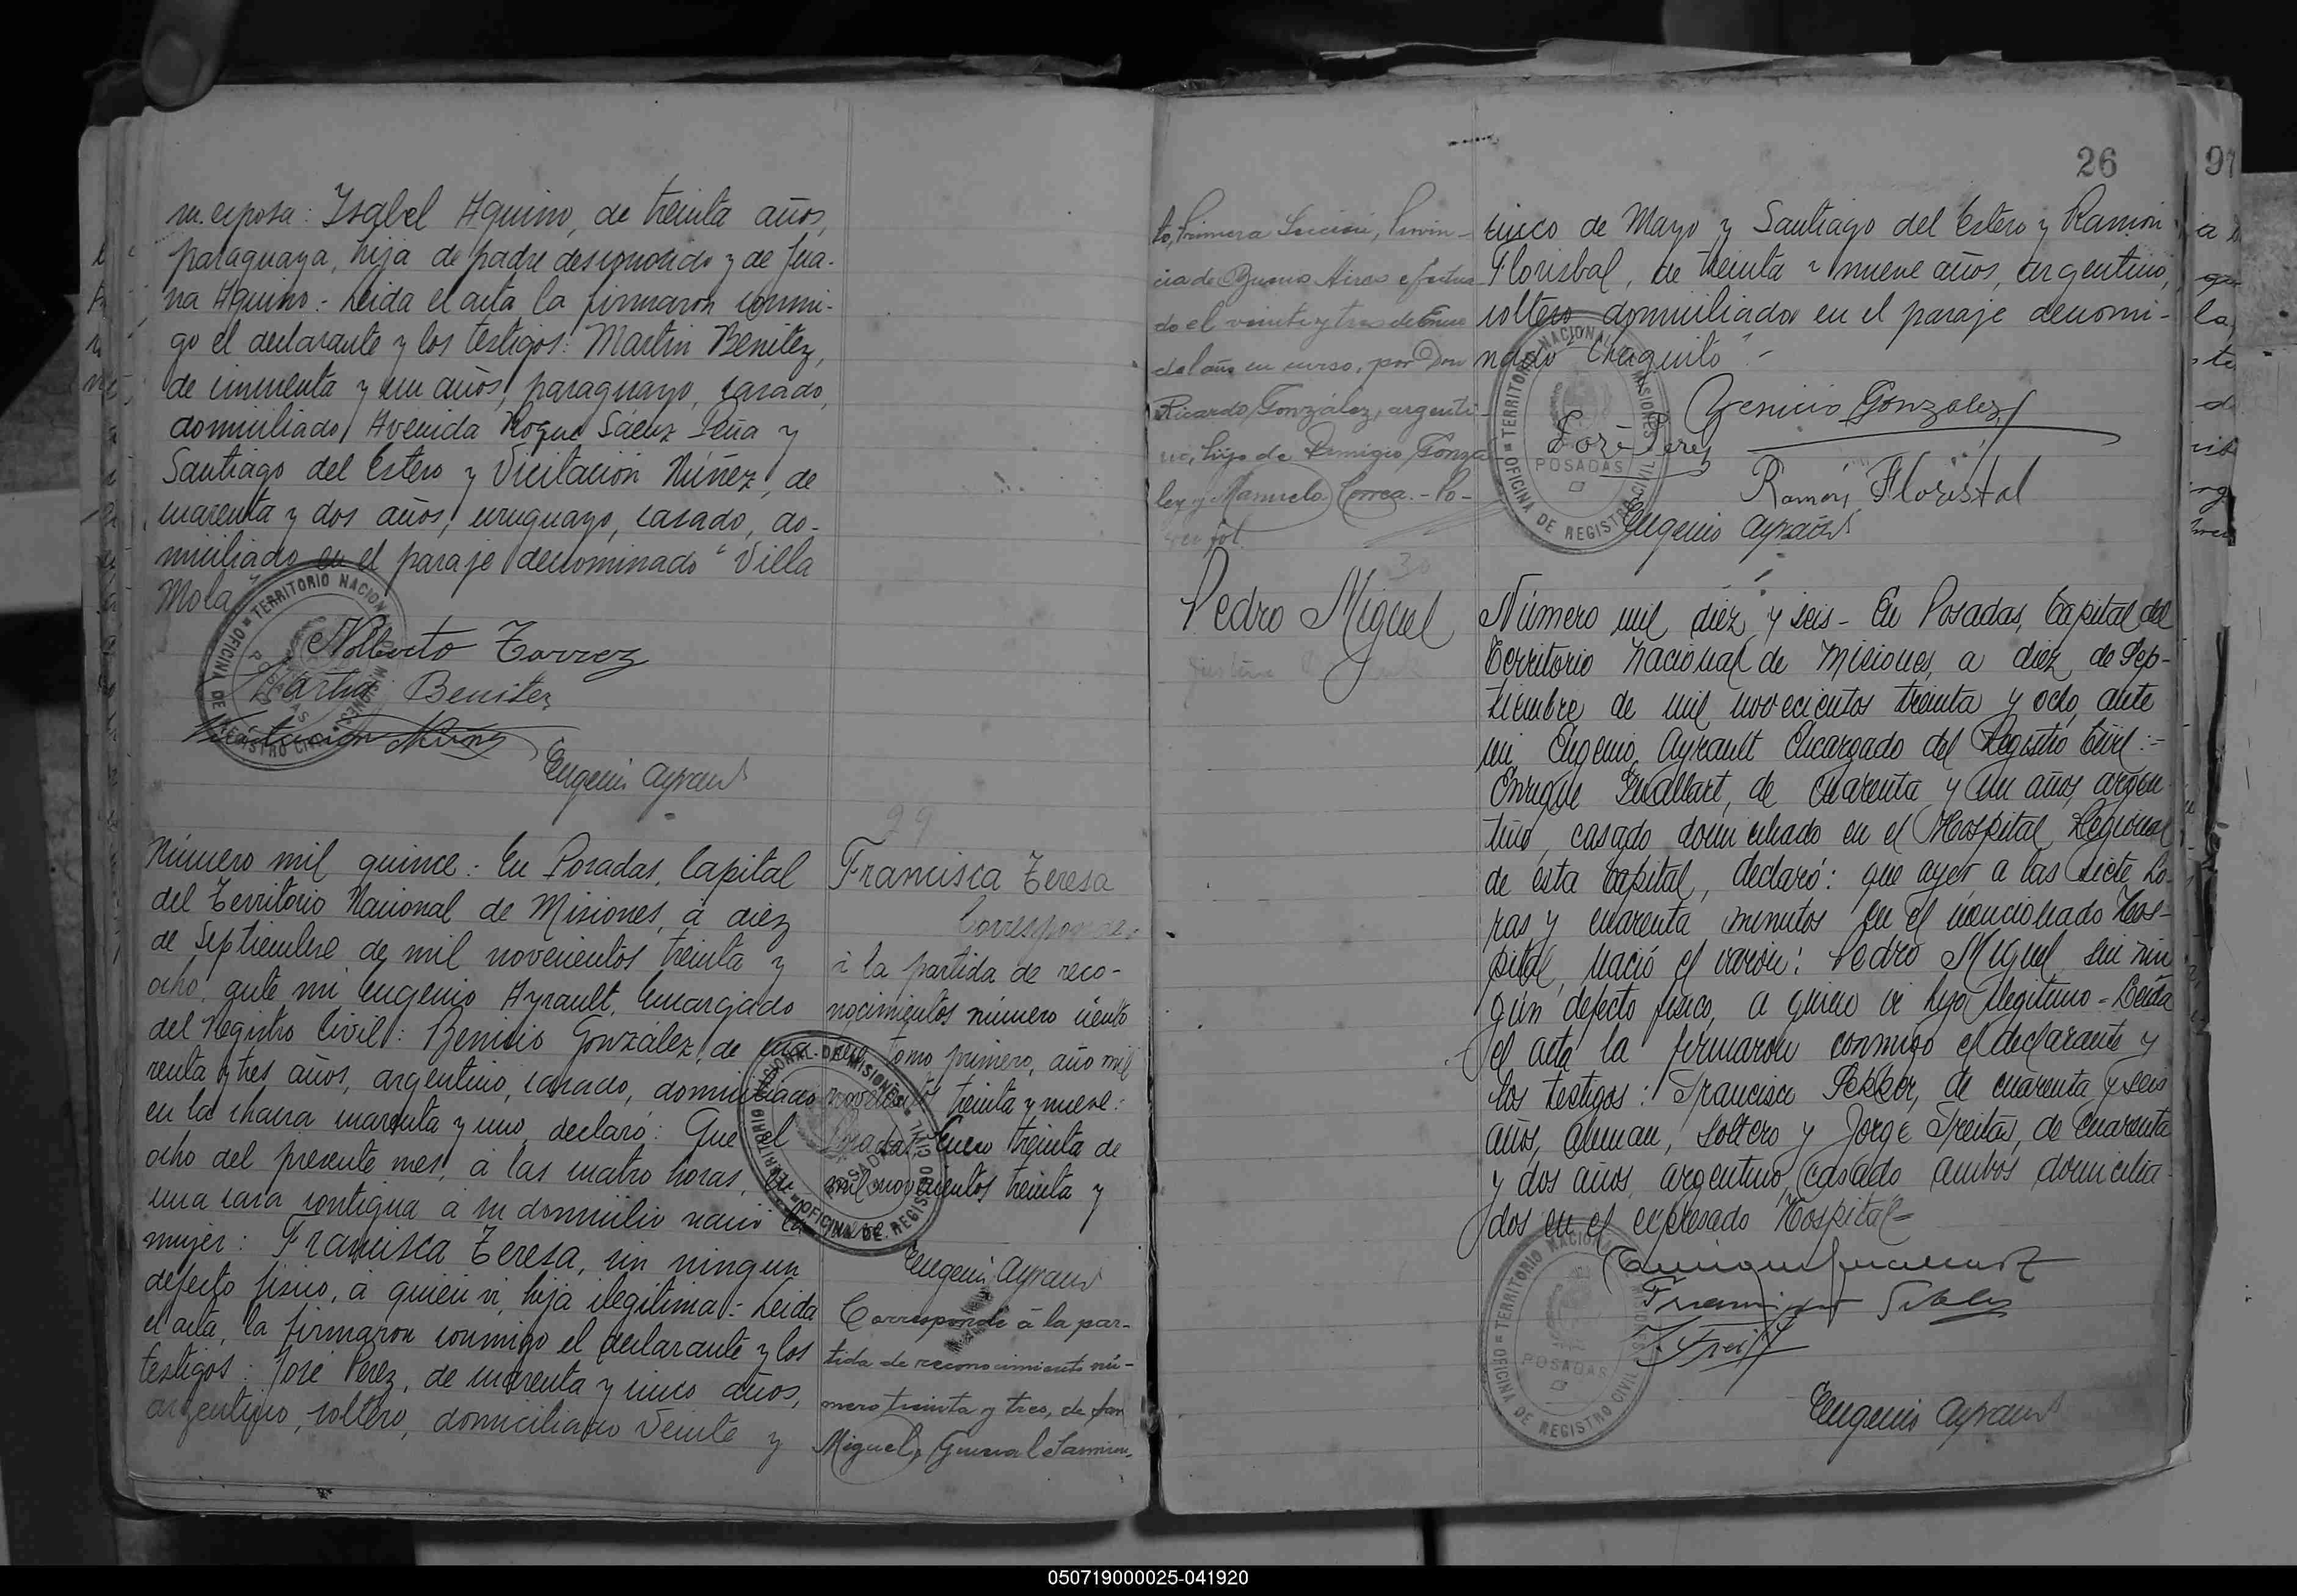 su esposa: Isabel Aquino, de treinta años,
paraguaya, hija de padre desconocido y de Jua-
na Aquino.- Leida el acta la firmaron conmi-
go el declarante y los testigos: Martin Benitez,
de cincuenta y un años, paraguayo, casado,
domiciliado Avenida Roque Sáenz Peña y
Santiago del Estero y Vicitación Núñez, de
cuarenta y dos años, uruguayo, casado, do-
miciliado en el paraje denominado "Villa
Mola"
TERRITORIO NACIONAL DE MISIONES
OFICINA DE REGISTRO CIVIL
POSADAS
Nolberto Torrez
Martin Benitez
Vicitacion Nuñez
Eugenio Ayrault
29
Número mil quince: En Posadas, Capital
del Territorio Nacional de Misiones, á diez
de Septiembre de mil novecientos treinta y
ocho, ante mi Eugenio Ayrault, Encargado
del Registro Civil: Benicio González, de cua-
renta y tres años, argentino, casado, domiciliado
en la chacra cuarenta y uno, declaró: Que el
ocho del presente mes, á las cuatro horas, en
una casa contigua á su domicilio nació la
mujer: Francisca Teresa, sin ningun
defecto fisico, á quien vi, hija ilegitima.- Leida
el acta, la firmaron conmigo el declarante y los
testigos: José Perez, de cuarenta y cinco años,
argentino, soltero, domiciliado Veinte y
Francisca Teresa
Corresponde
á la partida de reco-
nocimientos número ciento
tomo primero, año mil
novecientos treinta y nueve:
Posadas, Enero treinta de
mil novecientos treinta y
nueve.
TERRITORIO NACIONAL DE MISIONES
OFICINA DE REGISTRO CIVIL
POSADAS
Eugenio Ayrault
Corresponde á la par-
tida de reconocimiento nú-
mero treinta y tres, de San
Miguel, General Sarmien-
to, Primera Sección, Provin-
cia de Buenos Aires efectua
do el veinte y tres de Enero
del año en curso, por Don
Ricardo González, argenti-
no, hijo de Remigio Gonzá
lez y Manuela Correa.- Po-
26
97
cinco de Mayo y Santiago del Estero y Ramón
Florisbal, de treinta y nueve años, argentino,
soltero domiciliados en el paraje denomi-
nado "Chaquito".-
Venicio Gonzalez
José Perez
Ramón Florisbal
Eugenio Ayrault
TERRITORIO NACIONAL DE MISIONES
OFICINA DE REGISTRO CIVIL
POSADAS
30
Pedro Miguel
Número mil diez y seis- En Posadas, Capital del
Territorio Nacional de Misiones, a diez de Sep-
tiembre de mil novecientos treinta y ocho, ante
mi Eugenio Ayrault Encargado del Registro Civil:-
Enrique Gvallart, de cuarenta y un años, argen
tino, casado domiciliado en el Hospital Regional
de esta Capital, declaró: que ayer a las siete ho-
ras y cuarenta minutos en el mencionado Hos-
pital, nació el varón: Pedro Miguel sin nin
gún defecto fisico, a quien vi hijo ilegitimo = Leida
el acta la firmaron conmigo el declarante y
los testigos: Francisco Sekker, de cuarenta y seis
años, aleman, soltero y Jorge Freitas, de cuarenta
y dos años, argentino, casado ambos domicilia-
dos en el expresado Hospital-
TERRITORIO NACIONAL DE MISIONES
OFICINA DE REGISTRO CIVIL
POSADAS
Eugenio Ayrault
050719000025-041920